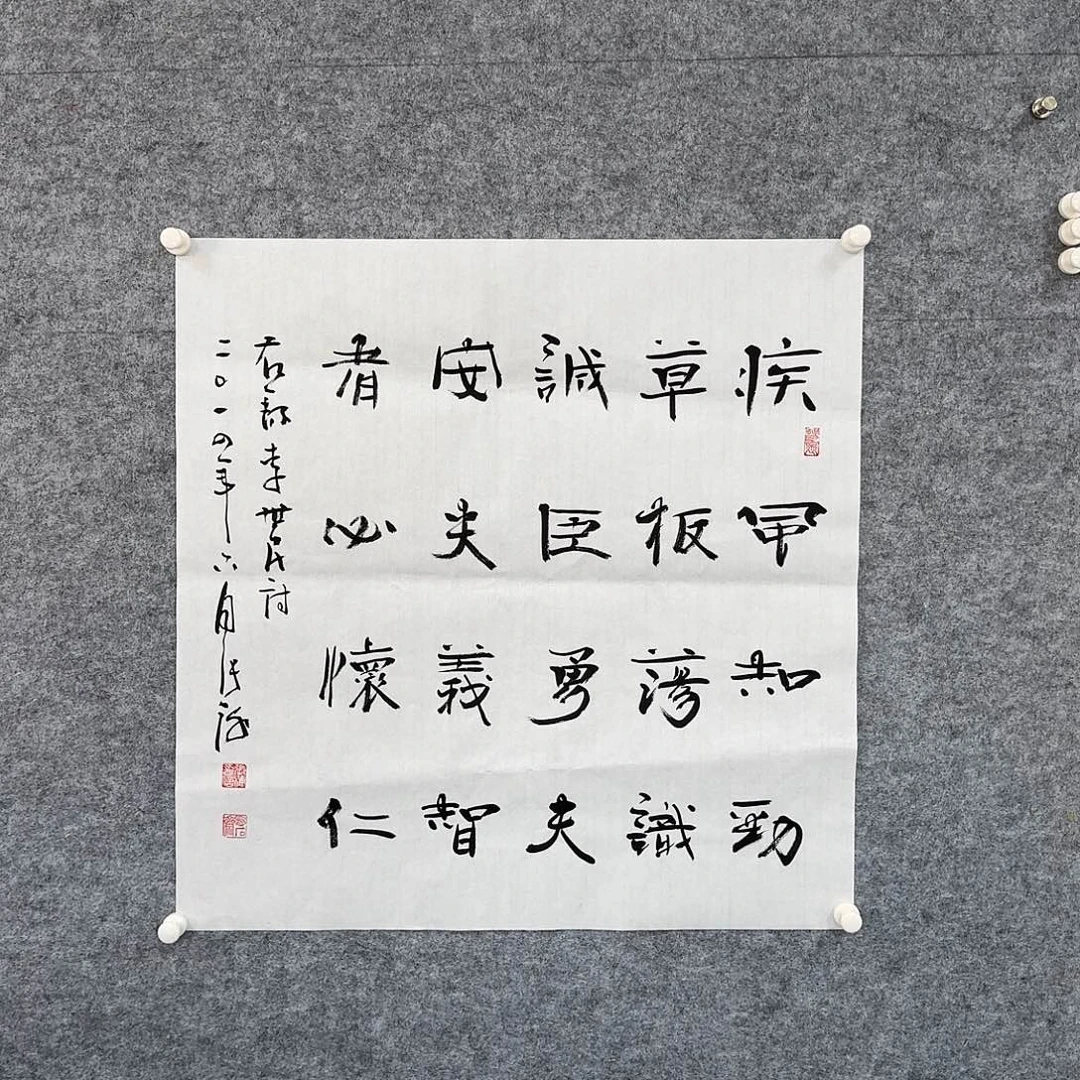 疾風知勁
草板蕩識
誠臣勇夫
安義智
者必懷仁
右錄李世民诗
二〇一四年六月